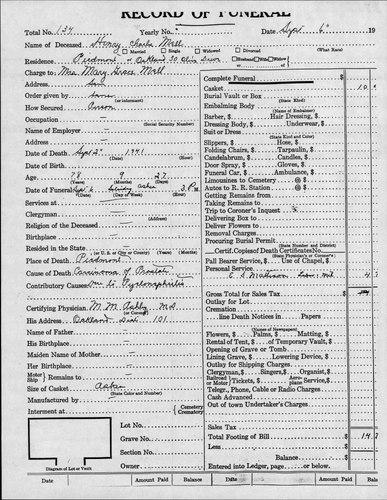 RECORD OF FUNERAL
Total No. 134 Yearly No. Date Sept. 6 19
Name of Deceased Harvey Charles Moll
Married Single Widowed Divorced (What Race)
Residence Piedmont Oakland 30 Drive Husband Wife Widow Of
Charge to Mrs. Mary Grace Moll
Address
Order given by
(or informant)
How Secured Person
Occupation
(Social Security Number)
Name of Employer
Address
Date of Death Sept 2 1941
(Date) (Hour)
Date of Birth
Age 78 9 27
(Years) (Months) (Days)
Date of Funeral Sept 6 3 P.
(Date) (Day of Week) (Hour)
Services at
Clergyman
Religion of the Deceased
Birthplace
Resided in the State
(or U. S. or City or County) (Years) (Months)
Place of Death Piedmont
Cause of Death Carcinoma of
Contributory Causes
Certifying Physician M. M. M.D.
(or Coroner)
His Address Oakland 101
Name of Father
His Birthplace
Maiden Name of Mother
Her Birthplace
Motor Ship Remains to
Size of Casket
(State Color and Number)
Manufactured by
Interment at Cemetery Crematory
Lot No.
Grave No.
Section No.
Owner
Diagram of Lot or Vault
Complete Funeral $
Casket $ 10
Burial Vault or Box
(State Kind)
Embalming Body
(Name of Embalmer)
Barber, $ Hair Dressing, $
Dressing Body, $ Underwear, $
Suit or Dress
(State Kind and Color)
Slippers, $ Hose, $
Folding Chairs, $ Tarpaulin, $
Candelabrum, $ Candles, $
Door Spray, $ Gloves, $
Funeral Car, $ Ambulance, $
Limousines to Cemetery @ $
Autos to R. R. Station @ $
Getting Remains from
Taking Remains to
Trip to Coroner's Inquest
Delivering Box to
Deliver Flowers to
Removal Charges
Procuring Burial Permit
(State Number and District)
Certif. Copies of Death Certificate
(State Physician's or Coroner's)
Pall Bearer Service, $ Use of Chapel, $
Personal Service
E. S.
Gross Total for Sales Tax $
Outlay for Lot
Cremation
line Death Notices in Papers
(Names of Newspapers)
Flowers, $ Palms, $ Matting, $
Rental of Tent, $ of Temporary Vault, $
Opening of Grave or Tomb
Lining Grave, $ Lowering Device, $
Outlay for Shipping Charges
Clergyman, $ Singers, $ Organist, $
Railroad or Motor Tickets, $ Aeroplane Service, $
Telegr., Phone, Cable or Radio Charges
Cash Advanced
Out of town Undertaker's Charges
Sales Tax
Total Footing of Bill $ 14
Less
Balance $
Entered into Ledger, page or below.
Date Amount Paid Balance Date Amount Paid Balance